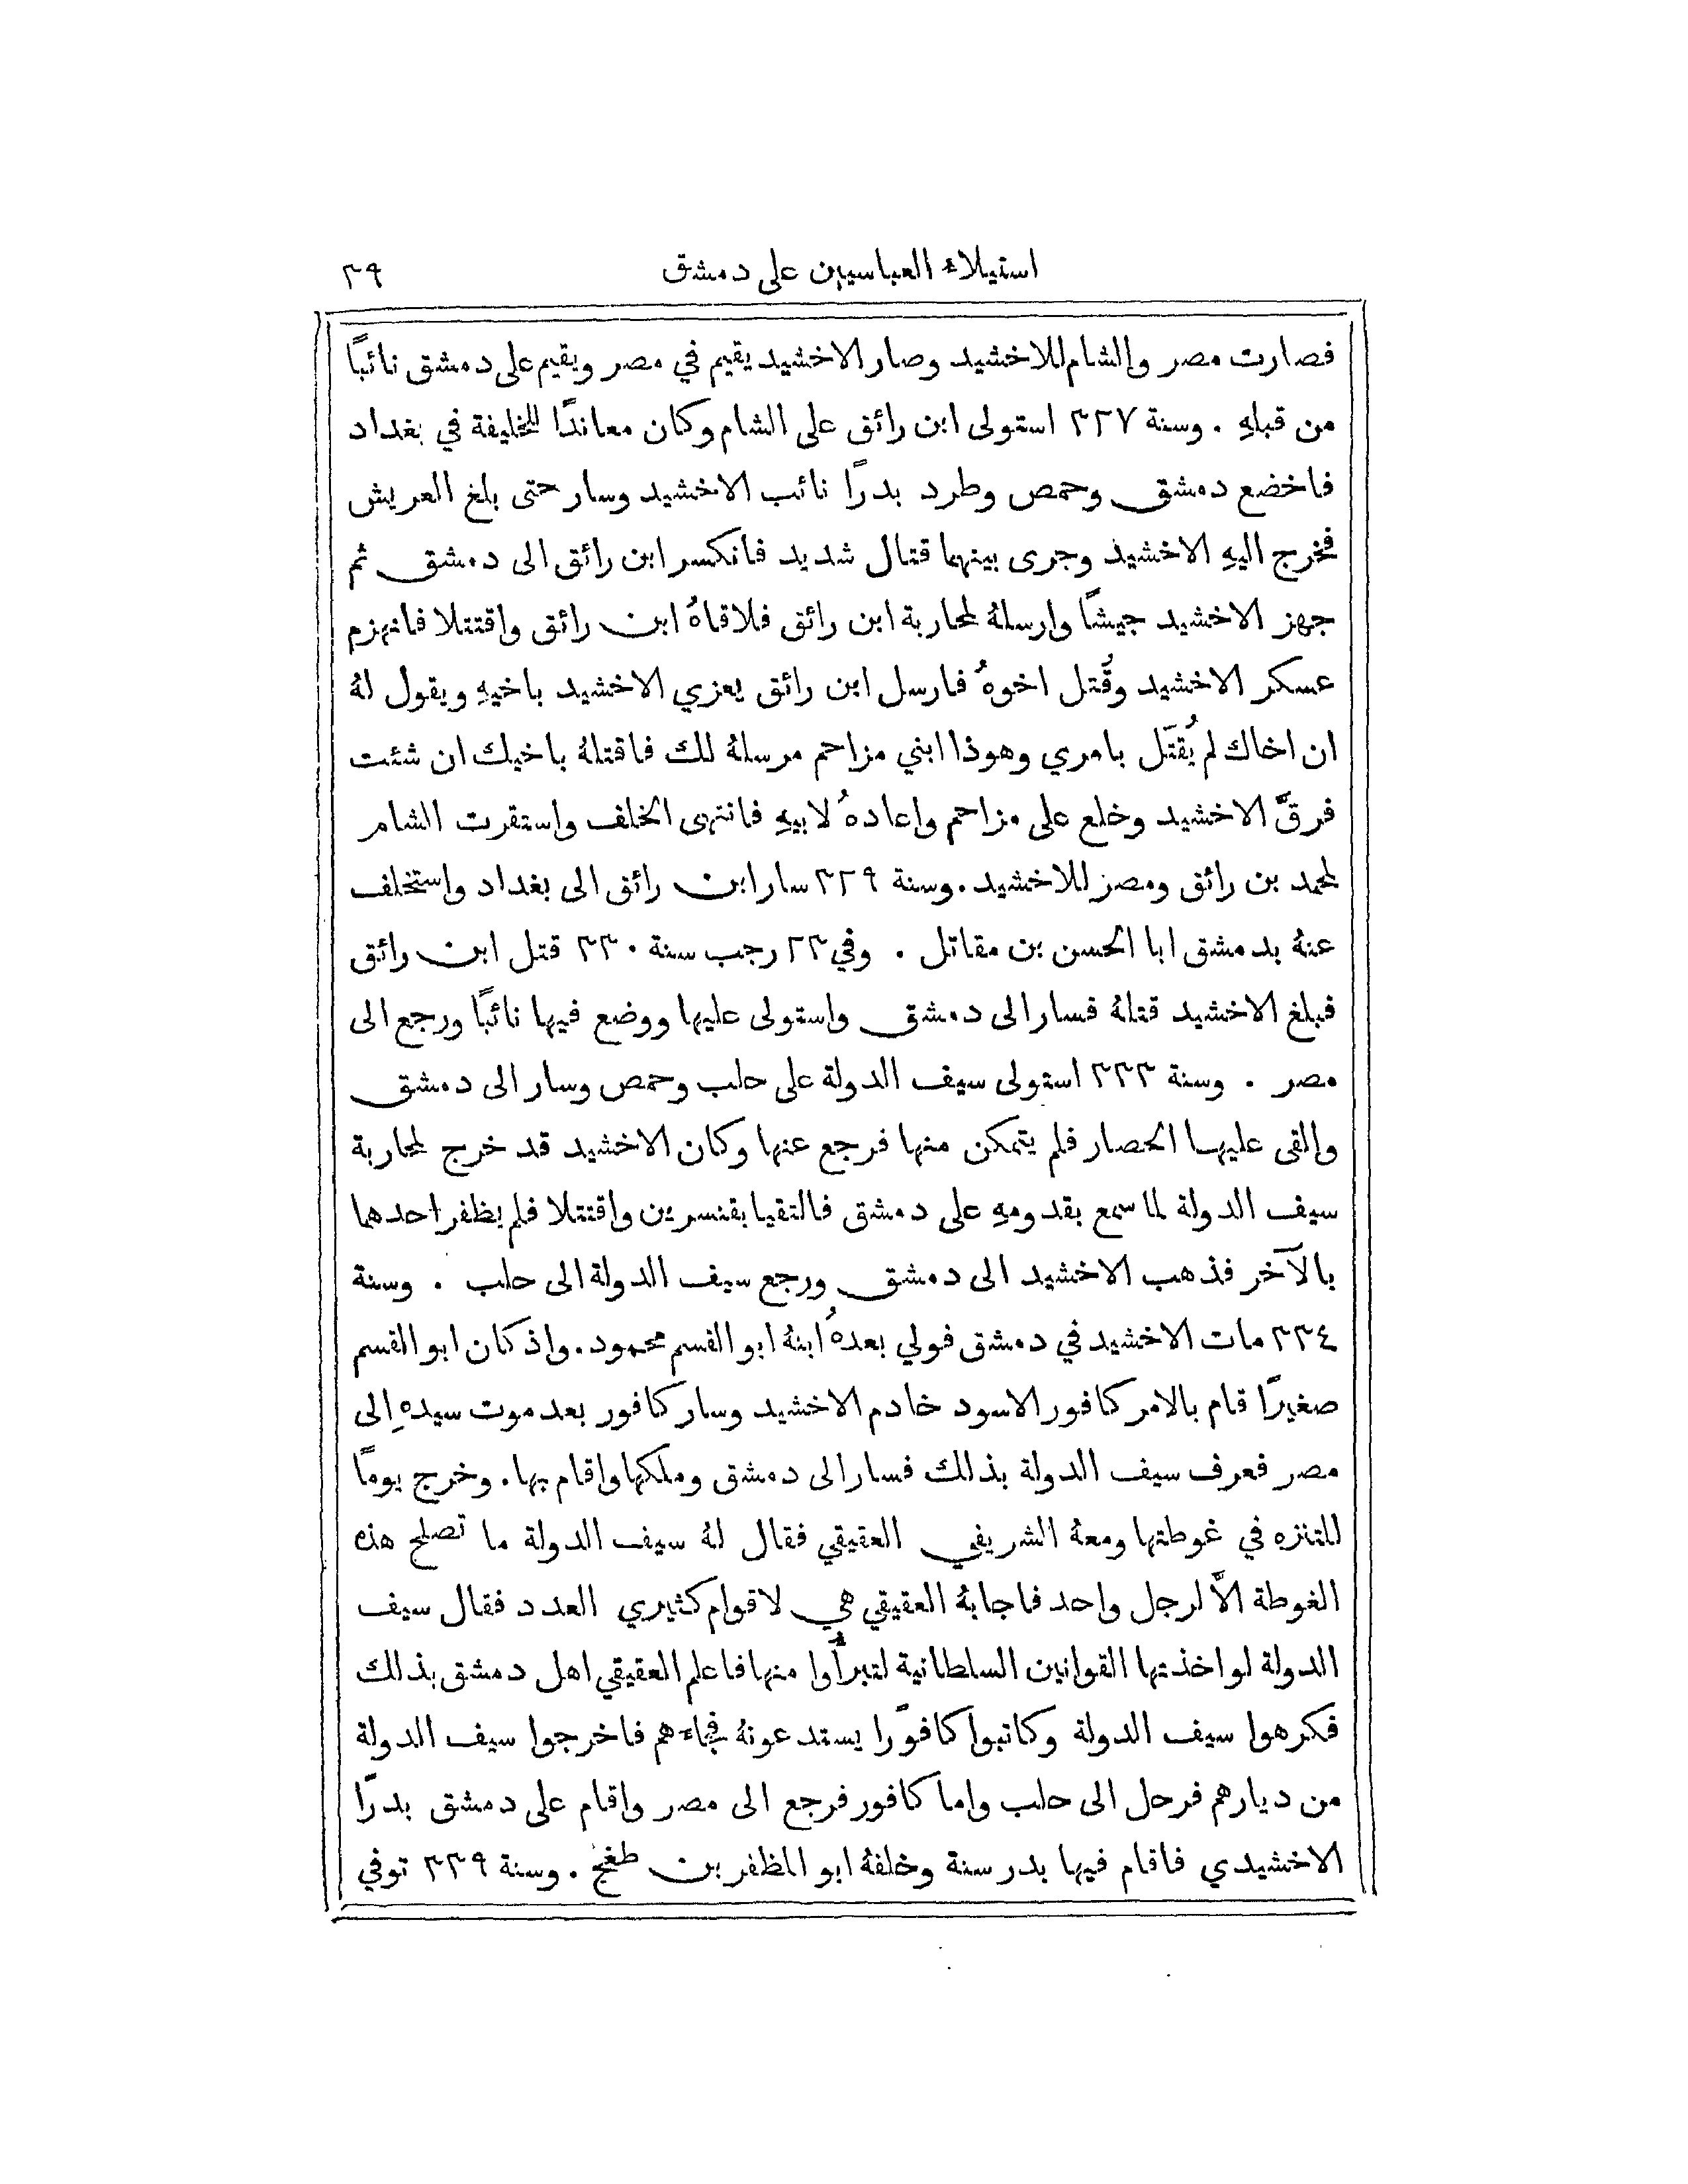 استيلاء العباسيين على دمشق ٣٩
فصارت مصر والشام للاخشيد وصار الاخشيد يقيم في مصر ويقيم على دمشق نائبًا
من قبلهِ . وسنة ٣٢٧ استولى ابن رائق على الشام وكان معاندًا للخليفة في بغداد
فاخضع دمشق وحمص وطرد بدرًا نائب الاخشيد وسار حتى بلغ العريش
فخرج اليهِ الاخشيد وجرى بينهما قتال شديد فانكسر ابن رائق الى دمشق ثم
جهز الاخشيد جيشًا وارسلهُ لمحاربة ابن رائق فلاقاهُ ابن رائق واقتتلا فانهزم
عسكر الاخشيد وقُتل اخوهُ فارسل ابن رائق يعزي الاخشيد باخيهِ ويقول لهُ
ان اخاك لم يُقتَل بامري وهوذا ابني مزاحم مرسلهُ لك فاقتلهُ باخيك ان شئت
فرقَّ الاخشيد وخلع على مزاحم واعادهُ لابيهِ فانتهى الخلف واستقرت الشام
لمحمد بن رائق ومصر للاخشيد . وسنة ٣٢٩ سار ابن رائق الى بغداد واستخلف
عنهُ بدمشق ابا الحسن بن مقاتل . وفي ٢٣ رجب سنة ٣٣٠ قتل ابن رائق
فبلغ الاخشيد قتلهُ فسار الى دمشق واستولى عليها ووضع فيها نائبًا ورجع الى
مصر . وسنة ٣٣٣ استولى سيف الدولة على حلب وحمص وسار الى دمشق
والقى عليها الحصار فلم يتمكن منها فرجع عنها وكان الاخشيد قد خرج لمحاربة
سيف الدولة لما سمع بقدومهِ على دمشق فالتقيا بقنسرين واقتتلا فلم يظفر احدهما
بالآخر فذهب الاخشيد الى دمشق ورجع سيف الدولة الى حلب . وسنة
٣٣٤ مات الاخشيد في دمشق فولي بعدهُ ابنهُ ابو القسم محمود . واذ كان ابو القسم
صغيرًا قام بالامر كافور الاسود خادم الاخشيد وسار كافور بعد موت سيدهِ الى
مصر فعرف سيف الدولة بذلك فسار الى دمشق وملكها واقام بها . وخرج يومًا
للتنزه في غوطتها ومعهُ الشريفي العقيقي فقال لهُ سيف الدولة ما تصلح هذه
الغوطة الاَّ لرجل واحد فاجابهُ العقيقي هي لاقوام كثيري العدد فقال سيف
الدولة لو اخذتها القوانين السلطانية لتبرأُوا منها فاعلم العقيقي اهل دمشق بذلك
فكرهوا سيف الدولة وكاتبوا كافورًا يستدعونهُ فجاءهم فاخرجوا سيف الدولة
من ديارهم فرحل الى حلب واما كافور فرجع الى مصر واقام على دمشق بدرًا
الاخشيدي فاقام فيها بدر سنة وخلفهُ ابو المظفر بن طغج . وسنة ٣٣٩ توفي